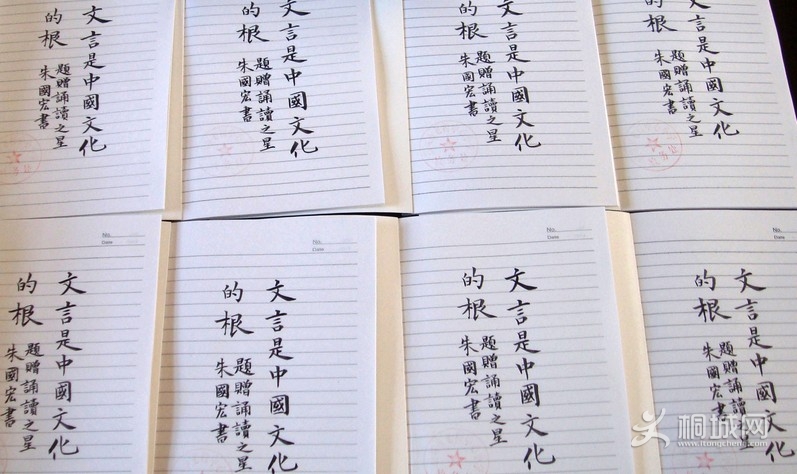 文言是中國文化
的根
題贈誦讀之星
朱國宏書
文言是中國文化
的根
題贈誦讀之星
朱國宏書
文言是中國文化
的根
題贈誦讀之星
朱國宏書
文言是中國文化
的根
題贈誦讀之星
朱國宏書
No.
Date
文言是中國文化
的根
題贈誦讀之星
朱國宏書
No.
Date
文言是中國文化
的根
題贈誦讀之星
朱國宏書
No.
Date
文言是中國文化
的根
題贈誦讀之星
朱國宏書
No.
Date
文言是中國文化
的根
題贈誦讀之星
朱國宏書
桐城网
www.itongcheng.com